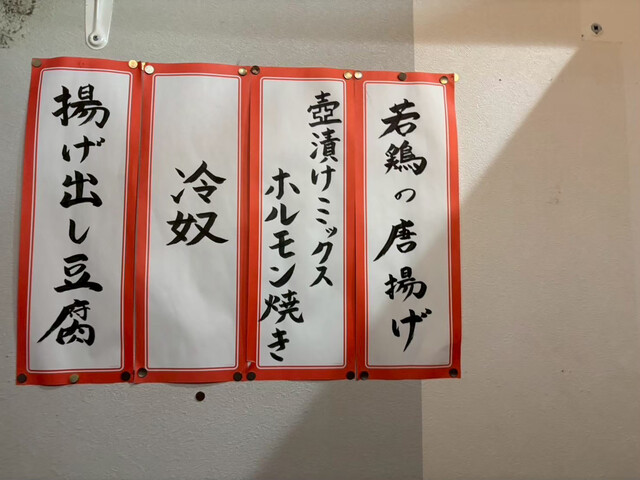 若鶏の唐揚げ
壺漬けミックス
ホルモン焼き
冷奴
揚げ出し豆腐